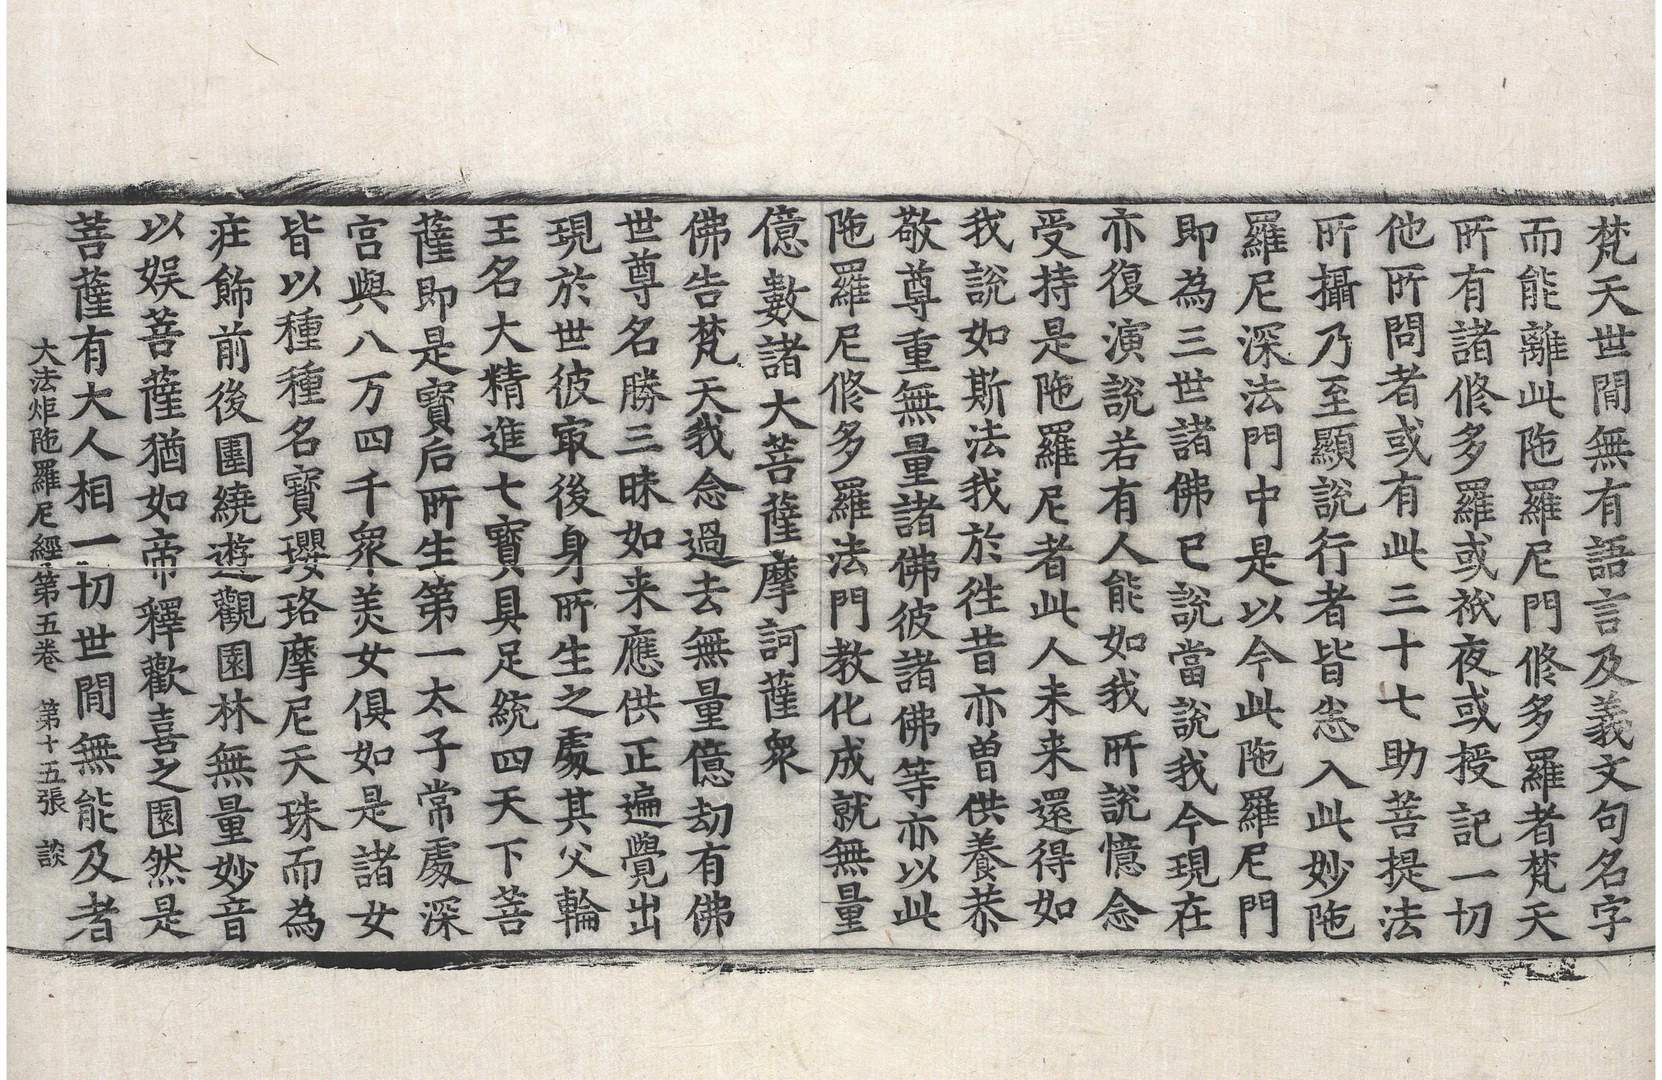 梵天世閒無有語言及義文句名字
而能離此陁羅尼門修多羅者梵天
所有諸修多羅或祇夜或授記一切
他所問者或有此三十七助菩提法
所攝乃至顯說行者皆悉入此妙陁
羅尼深法門中是以今此陁羅尼門
即為三世諸佛已說當說我今現在
亦復演說若有人能如我所說憶念
受持是陁羅尼者此人未来還得如
我說如斯法我於往昔亦曾供養恭
敬尊重無量諸佛彼諸佛等亦以此
陁羅尼修多羅法門教化成就無量
億數諸大菩薩摩訶薩衆
佛告梵天我念過去無量億劫有佛
世尊名勝三昧如来應供正遍覺出
現於世彼㝡後身所生之處其父輪
王名大精進七寶具足統四天下菩
薩即是寶后所生第一太子常處深
宮與八万四千衆美女俱如是諸女
皆以種種名寶瓔珞摩尼天珠而為
莊飾前後圍繞遊觀園林無量妙音
以娛菩薩猶如帝釋歡喜之園然是
菩薩有大人相一切世間無能及者
大法炬陁羅尼經第五卷 第十五張 談